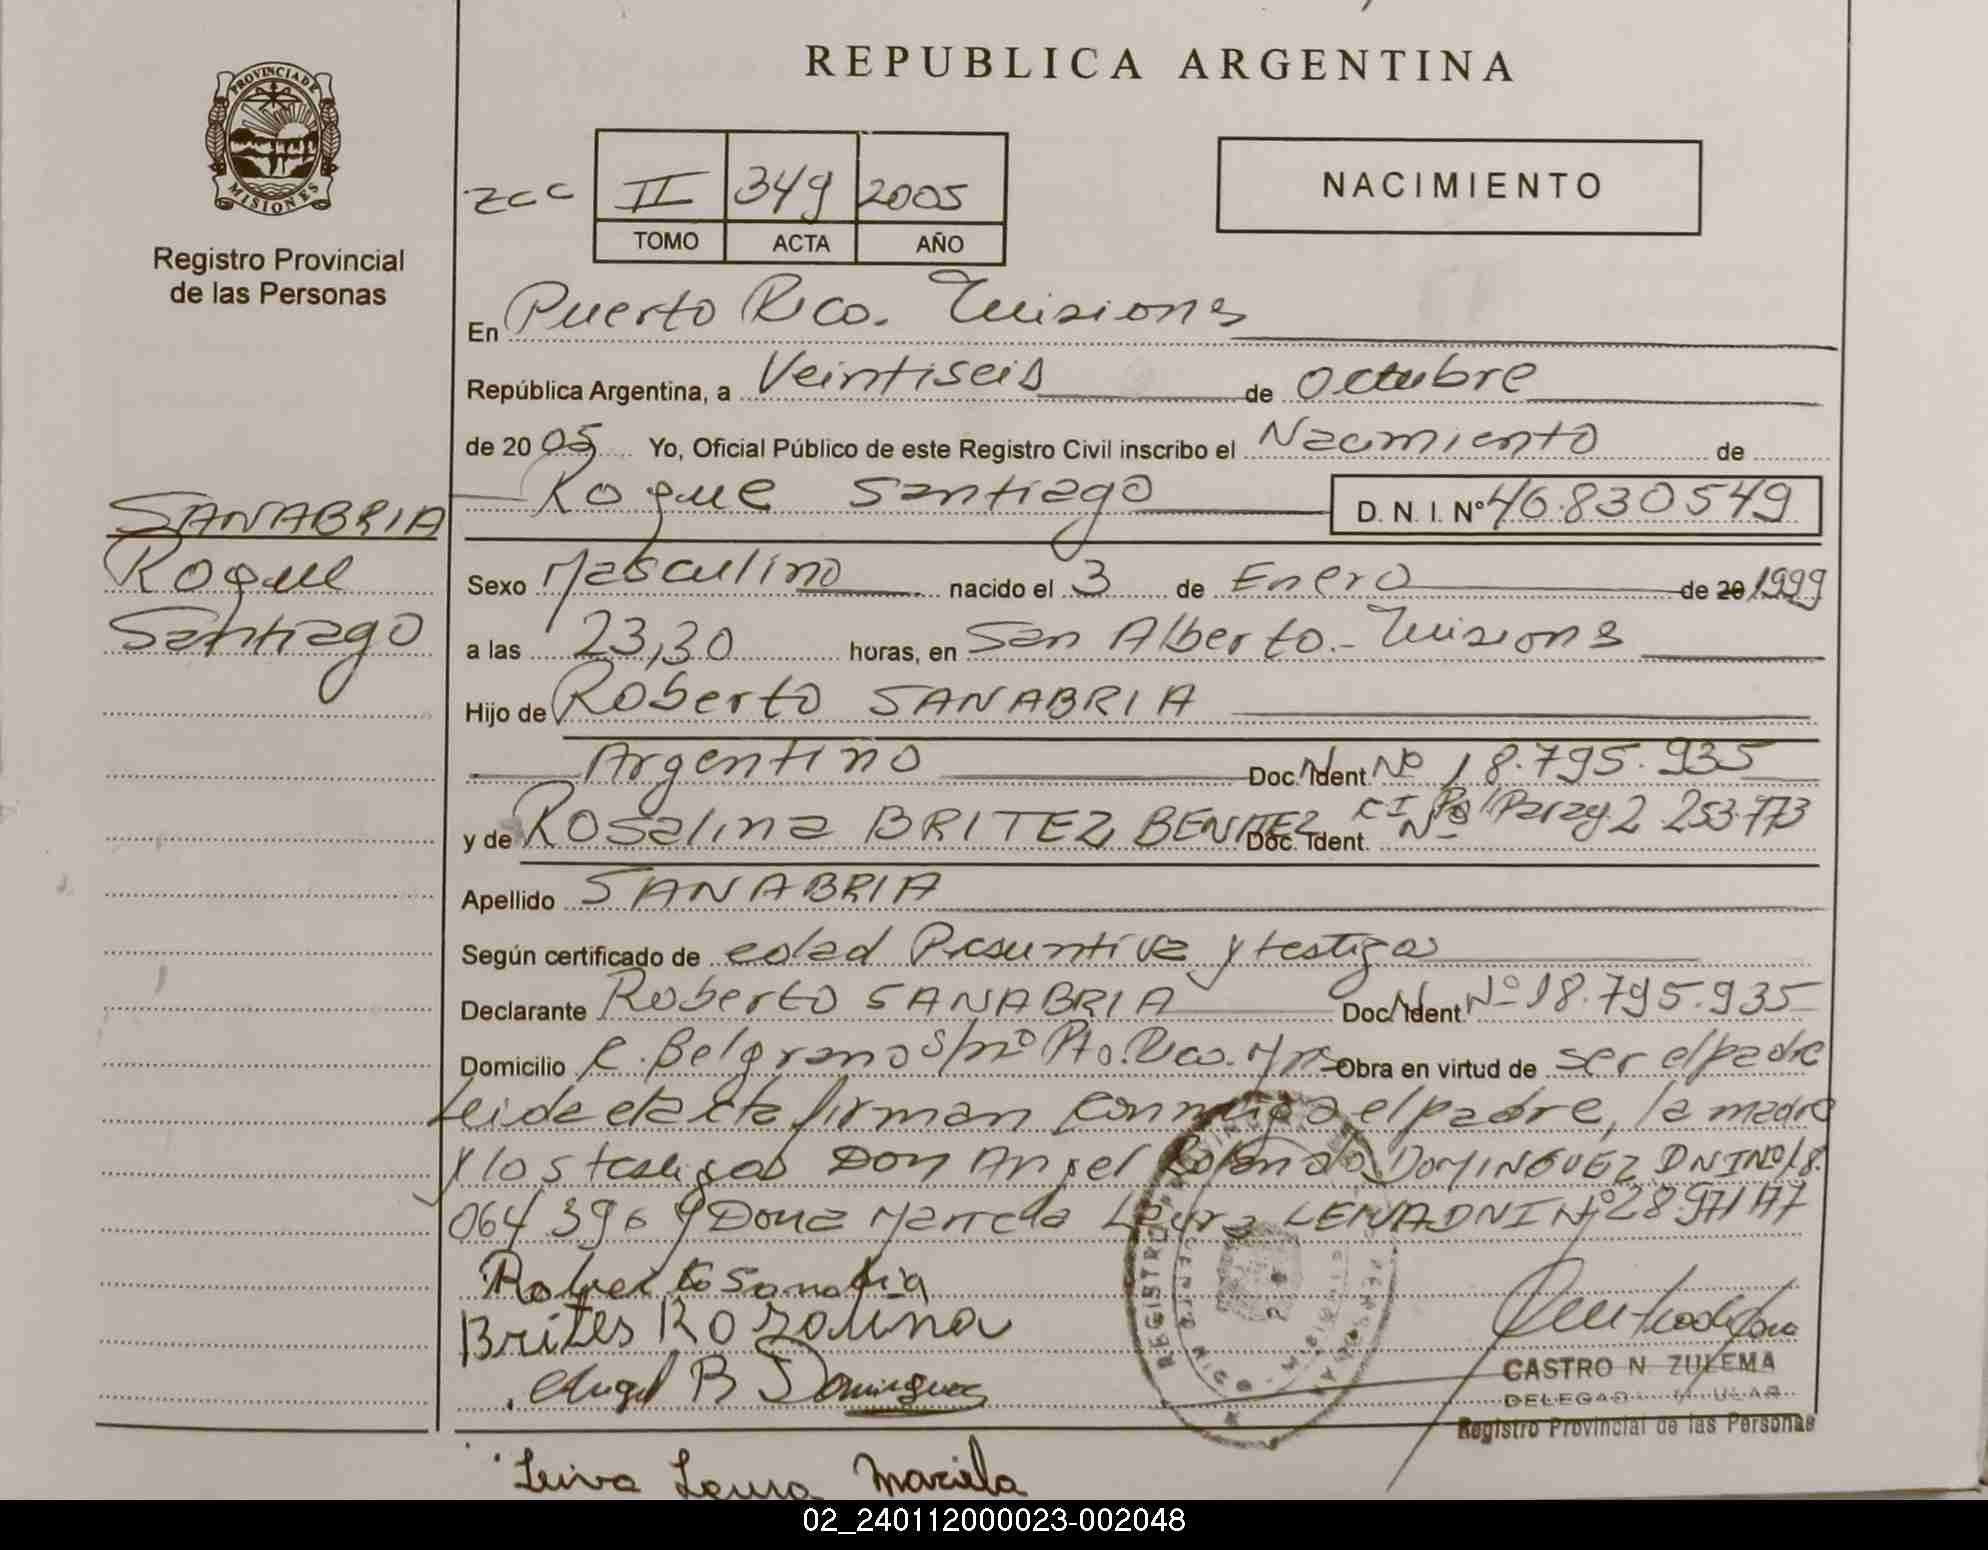 PROVINCIA DE
MISIONES
Registro Provincial
de las Personas
SANABRIA
Roque
Santiago
REPUBLICA ARGENTINA
zcc II 349 2005
TOMO ACTA AÑO
NACIMIENTO
En Puerto Rico. Misiones
República Argentina, a Veintiseis de octubre
de 20 05 Yo, Oficial Público de este Registro Civil inscribo el Nacimiento de
Roque Santiago D. N. I. Nº 46.830549
Sexo Masculino nacido el 3 de Enero de 20 1999
a las 23,30 horas, en San Alberto.- Misiones
Hijo de Roberto SANABRIA
Argentino Doc. Ident. Nº 18.795.935
y de Rosalina BRITEZ BENITEZ Doc. Ident. CI Parag 2 253.773
Apellido SANABRIA
Según certificado de edad Presuntiva y testigos
Declarante Roberto SANABRIA Doc. Ident. Nº 18.795.935
Domicilio C. Belgrano s/nº Pto. Rico. Mnes Obra en virtud de ser el padre
Leida el acta firman conmigo el padre, la madre
y los testigos Don Angel Rolando DOMINGUEZ, DNI Nº 18.
064.396 y Doña Marcela Laura DNI Nº 28.971177
Roberto Sanabria
Brites Rozalina
Angel R Dominguez
Leiva Laura Mariela
REGISTRO
CASTRO N. ZULEMA
DELEGADA TITULAR
Registro Provincial de las Personas
02_240112000023-002048